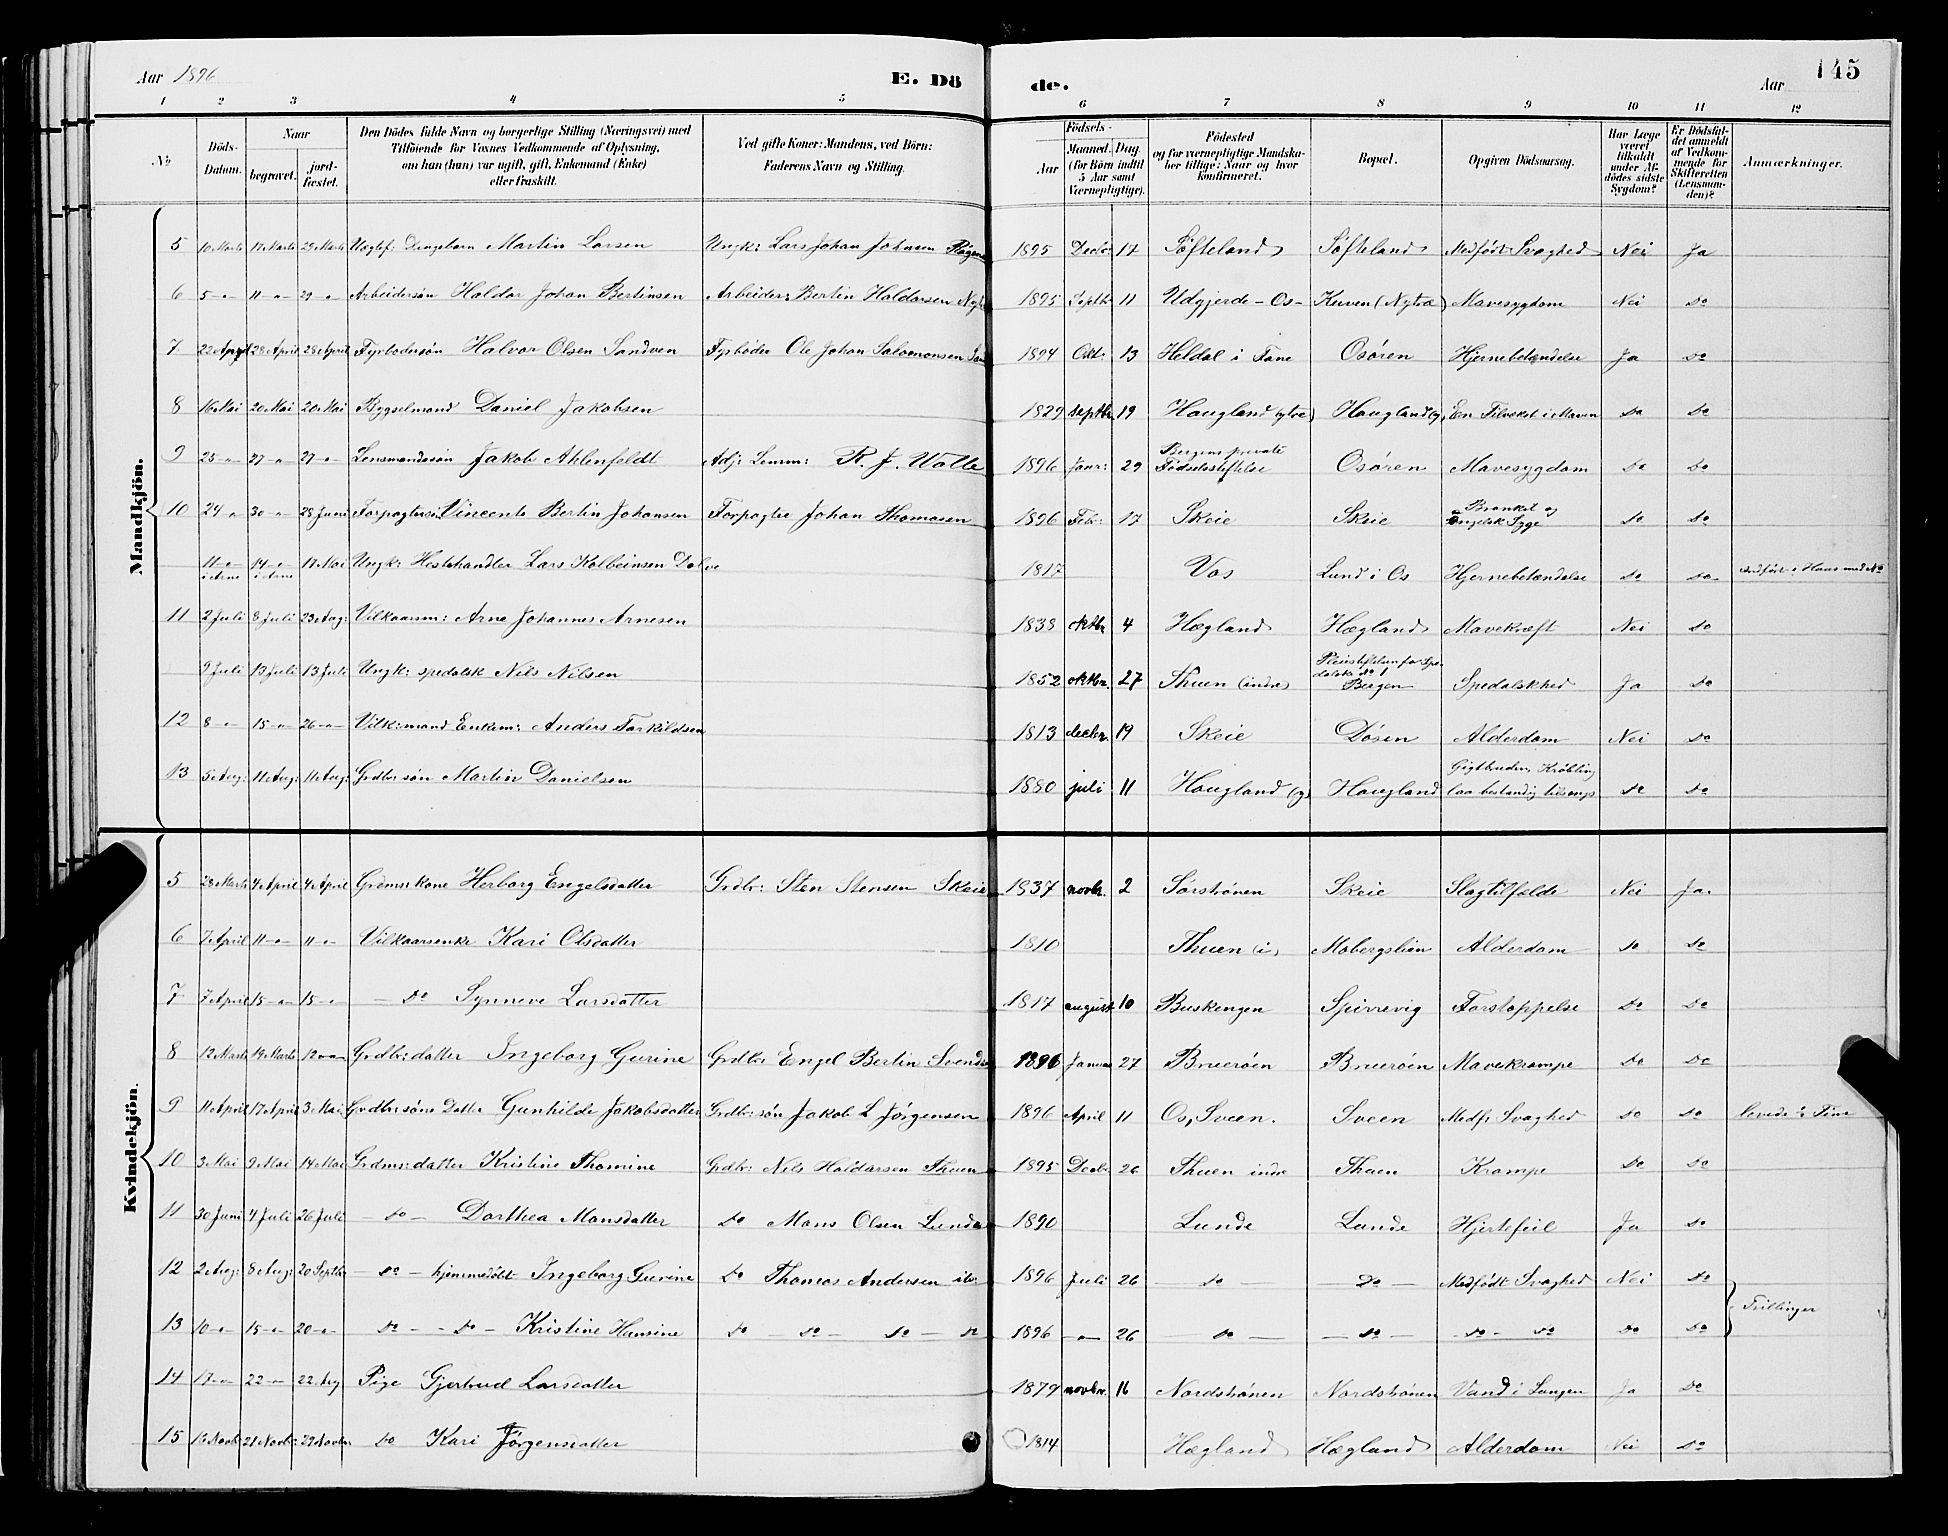 Aar 1896 E. Dö de. Aar 145
1 2 3 4 5 6 7 8 9 10 11 12
No
Döds-Datum.
Naar
begravet.
jord-fæstet.
Den Dödes fulde Navn og borgerlige Stilling (Næringsvei) med
Tilföiende for Voxnes Vedkommende af Oplysning,
om han (hun) var ugift, gift, Enkemand (Enke)
eller fraskilt.
Ved gifte Koner: Mandens, ved Börn:
Faderens Navn og Stilling.
Födsels-
Aar
Maaned. Dag.
(for Börn indtil
5 Aar samt
Værnepligtige).
Födested
og for værnepligtige Mandska-
ber tillige: Naar og hvor
konfirmeret.
Bopæl.
Opgiven Dödsaarsag.
Har Læge
været
tilkaldt
under Af-
dödes sidste
Sygdom?
Er Dödsfal-
det anmeldt
af Vedkom-
mende for
Skifteretten
(Lensman-
den)?
Anmærkninger.
Mandkjön.
5 10 Marts 17 Marts 29 Marts Uægtef: Drengebarn Martin Larsen Ungk: Lars Johan Johnsen 1895 Decbr: 17 Söfteland Söfteland Medfödt Svaghed Nei Ja
6 5 -"- 11 -"- 29 -"- Arbeidersön Haldor Johan Bertinsen Arbeider: Bertin Haldorsen 1895 Septb: 11 Udgjerde - Os - Kuven (Nytræ) Mavesygdom Nei Do
7 22 April 28 April 28 April Fyrbödersön Halvor Olsen Sandven Fyrböder Ole Johan Salomonsen 1894 Okt: 13 Heldal i Fane Osören Hjernebetændelse Ja Do
8 16 Mai 20 Mai 20 Mai Bygselmand Daniel Jakobsen 1829 Septbr 19 Haugland (ytre) Haugland (y) En Tilvekst i Maven Do Do
9 25 -"- 27 -"- 27 -"- Lensmandssön Jakob Ahlenfeldt Adj: Lensm: R. J. Wolle 1896 Janr: 29 Bergens private Födselsstiftelse Osören Mavesygdom Do Do
10 24 " 30 -"- 28 Juni Forpagtersön Vincents Bertin Johansen Forpagter Johan Thomasen 1896 Febr: 17 Skeie Skeie Bronkit og
engelsk Syge Do Do
11 -"- i Arne 14 -"- i Arne 17 Mai Ungk: Hestehandler Lars Kolbeinsen Dolve 1817 Vos Lund i Os Hjernebetændelse Do Do indfört i Haus med No
11 2 Juli 8 Juli 23 Aug: Vilkaarsm: Arne Johannes Arnesen 1838 oktbr 4 Hægland Hægland Mavekræft Nei Do
9 Juli 13 Juli 13 Juli Ungk: spedalsk Nils Nilsen 1852 oktbr. 27 Thuen (indre) Pleiestiftelsen for Spe-
dalske No 1
Bergen Spedalskhed Ja Do
12 8 -"- 15 -"- 26 -"- Vilk:mand Enkem: Anders Torkildsen 1813 decbr. 19 Skeie Dösen Alderdom Nei Do
13 5 Aug: 11 Aug: 11 Aug: Grdbr:sön Martin Danielsen 1880 juli 11 Haugland (y) Haugland Gigtbruden, Kröbling
laa bestandig tilsengs Do Do
Kvindekjön.
5 28 Marts 4 April 4 April Grdms: kone Herborg Engelsdatter Grdbr: Sten Stensen Skeie 1837 novbr. 2 Sörströnen Skeie Slagtilfælde Nei Ja.
6 7 April 11 -"- 11 -"- Vilkaarsenke Kari Olsdatter 1810 Thuen (i) Mobergslien Alderdom Do Do
7 7 April 15 -"- 15 -"- — Do Synneve Larsdatter 1817 august 10 Buskengen Spirrevig Forstoppelse Do Do
8 12 Marts 19 Marts 12 -"- Grdbr: datter Ingeborg Gurine Grdbr Engel Bertin Svendsen 1896 Januar 27 Bruröen Bruröen Mavekrampe Do Do
9 11 April 17 April 3 Mai Grdbrsöns Datter Gunhilde Jakobsdatter Grdbr: sön Jakob L Jörgensen 1896 April 11 Os, Sveen. Sveen Medf: Svaghed Do Do levede ½ Time
10 3 Mai 9 Mai 14 Mai Grdms: datter Kristine Thomine Grdbr: Nils Haldorsen Thuen 1895 Decbr 26 Thuen indre Thuen Krampe Do Do
11 30 Juni 4 Juli 26 Juli — Do — Dorthea Monsdatter Do Mons Olsen Lunde 1890 Lunde Lunde Hjertefeil Ja Do
12 2 Aug: 8 Aug: 20 Septbr — Do — hjemmedöbt Ingeborg Gurine Do Thomas Andersen ibr 1896 Juli 26 — Do — Do — Medfödt Svaghed Nei Do
Trillinger
13 10 -"- 15 -"- 20 -"- Do — Do — Kristine Hansine Do Do — Do — Do 1896 -"- 26 — Do — — Do — Do - Do Do Do
14 17 -"- 22 -"- 22 Aug Pige Gjertrud Larsdatter 1879 novbr. 16 Nordströnen Nordströnen Vand i Lungen Ja Do
15 16 Novb: 21 Novb: 29 Novbr Do Kari Jörgensdatter 1814 Hægland Hægland Alderdom Nei Do